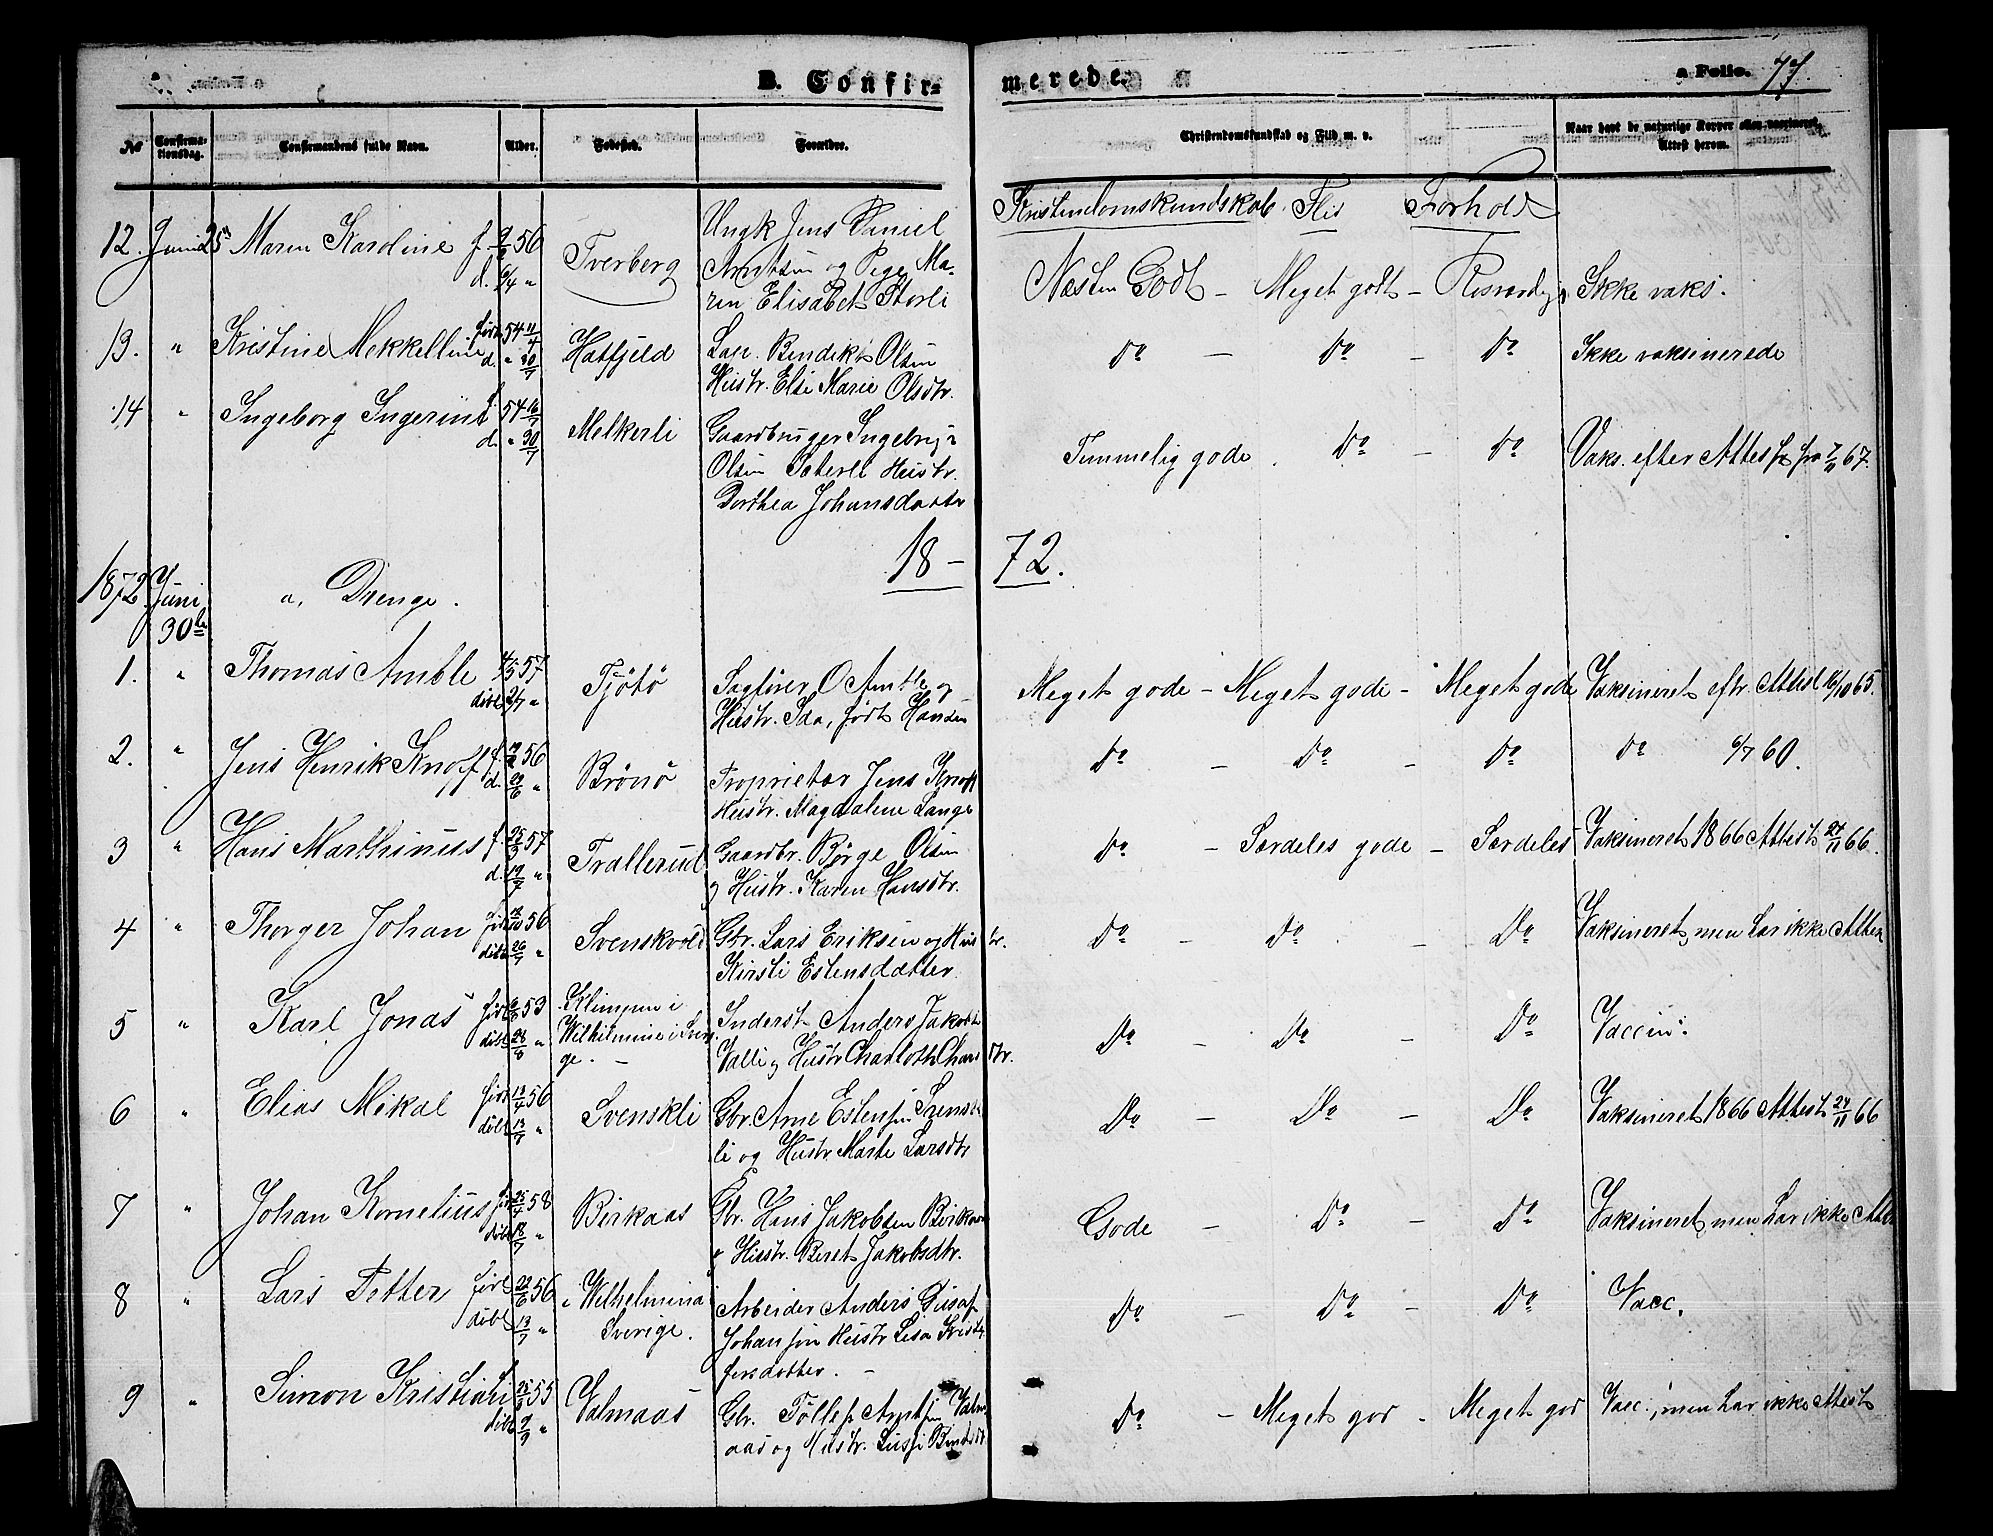 B. Confir-
merede.
a Folio. 77.
No
Confirma-
tionsdag.
Confirmandens fulde Navn.
Alder.
Fødested.
Forældre.
Christendomskundskab og Flid m. v.
Naar havt de naturlige Kopper eller vaccineret.
Attest herom.
Kristendomskundskab. Flid Forhold
12. Juni 25 Maren Karoline f. 56
d. 6/4 "
Tverberg
Ungk Jens Daniel
Arntsen og Pige Ma-
ren Elisabet Storli
Næsten Godt - Meget godt - Ikke vaks.
13. " Kristine Mekkelline født 54 11/4
d. " 30/7
Hatfjeld
Lap. Bendikt Olsen
Hustr. Else Marie Olsdtr.
Do - Do - Do Ikke vaksinerede
14 " Ingeborg Ingerine f. 54 16/7
d. " 30/7
Melkerli
Gaardbruger Ingebrigt
Olsen Hustr.
Dorthea Johansdatter
Temmelig gode . Do - Do Vaks. efter Attest fra 7/11 67.
18 - 72.
1872 Juni
30te
a, Drenge.
1. " Thomas Amble 4/5 57
døbt 2/7 "
Tjøtø
Sagfører O Amble og
Hustr. Ida, født Hansen
Meget gode - Meget gode - Meget gode Vaksineret eftr. Attest 16/10 65.
2. " Jens Henrik Knoff f. 56
d. 29/6 "
Brønø
Proprietær Jens Knoff
Hustr. Magdalene Lange
Do - Do - Do Do 6/7 60.
3 " Hans Marthinus f. 25/3 57
d. 19/7 "
Trallerud
Gaardbr. Børge Olsen
og Hustr. Karen Hansdtr.
Do - Særdeles gode - Særdeles Vaksineret 1866 Attest 24/11 66.
4 " Thorger Johan født 18/10 56
døbt 26/7 "
Svenskvold
Gbr. Lars Eriksen og Hustr.
Kirsti Estensdatter
Do - Do - Do Vaksineret, men har ikke Attest
5 " Karl Jonas født 53
døbt 28/8 "
Klimpen i
Wilhelmine i Sveri-
ge. -
Inderst Anders Jakobs
Valli og Hustr. Charlotth dtr.
Do - Do - Do Vaccin:
6 " Elias Mikal født 12/4 56
døbt 13/7 "
Svenskli
Gbr. Arne Estensen Svensk
li og Hustr. Marte Larsdtr
Do - Do - Do Vaksineret 1866 Attest 24/11 66
7 " Johan Kornelius født 25/4 58
døbt 18/7 "
Birkaas
Gbr. Hans Jakobsen Birkaas
og Hustr. Beret Jakobsdtr.
Gode - Do - Do Vaksineret, men har ikke Attest
8 " Lars Petter født 22/6 56
døbt 13/7 "
Wilhelmina
Sverige.
Arbeider Anders Gustaf
Johansson Hustr Lisa Krist
fersdotter. -
Do - Do - Do Vacc.
9 " Simon Kristian f. 55
døbt 9/9 "
Valmaas
Gbr. Tøllef Arntsen Valm
aas og Hustr.
Do - Meget god - Meget god Vacc., men har ikke Attest